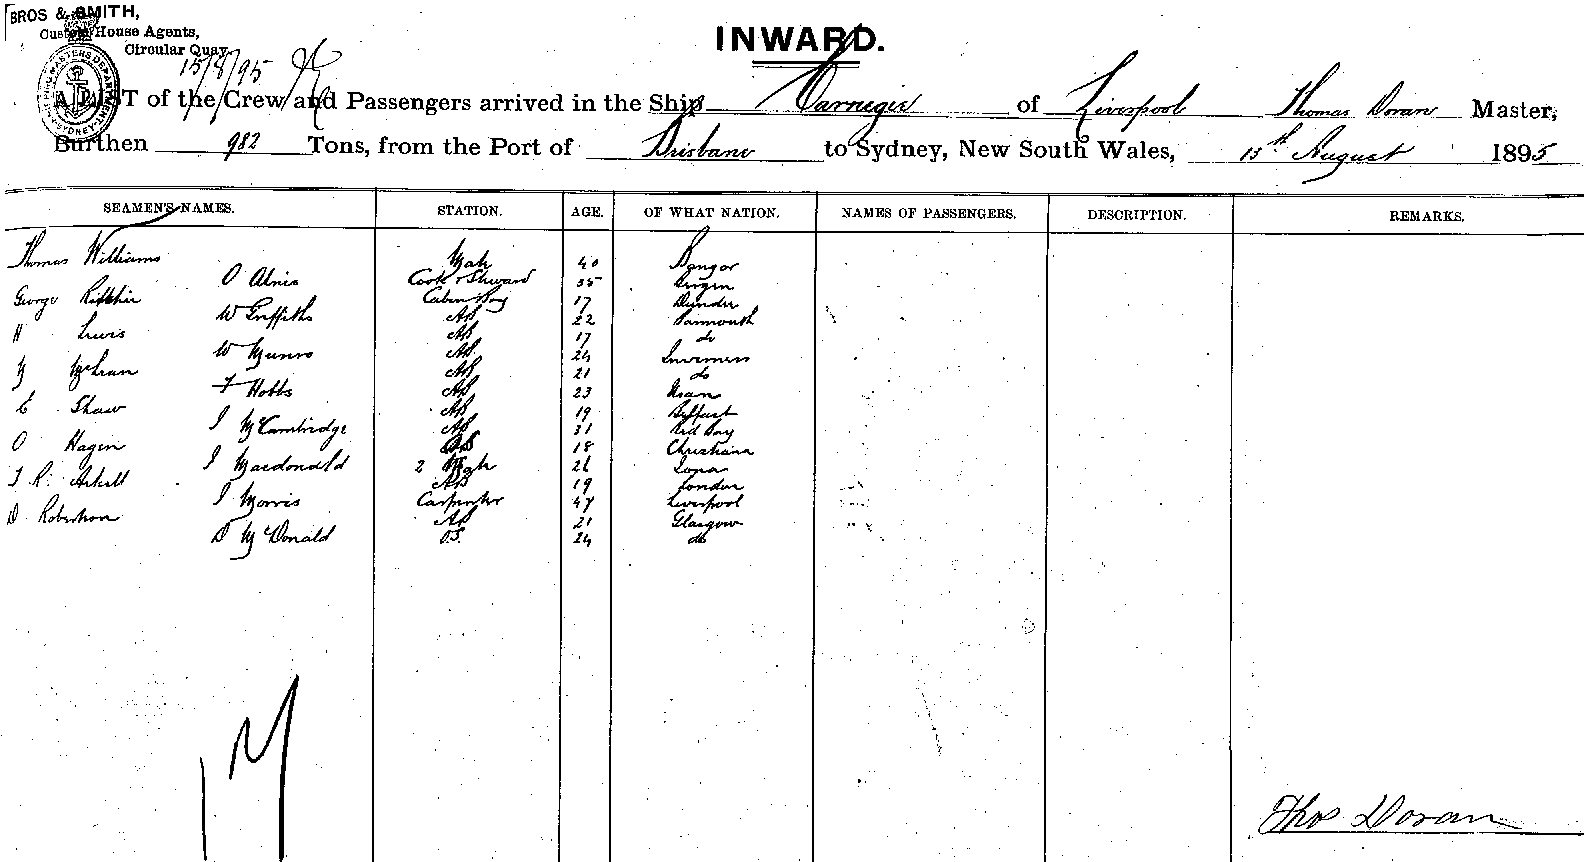 BROS & SMITH,
Custom House Agents,
Circular Quay
15/8/95
INWARD.
A LIST of the Crew and Passengers arrived in the Ship Carnegie of Liverpool Thomas Doran Master,
Burthen 982 Tons, from the Port of Brisbane to Sydney, New South Wales, 15th August 1895
SEAMEN'S NAMES. STATION. AGE. OF WHAT NATION. NAMES OF PASSENGERS. DESCRIPTION. REMARKS.
Thomas Williams Mate 40 Bangor
O Alnis Cook & Steward 35 Bergen
George Cabin Boy 17 Dundee
W Griffiths AB 22 Barmouth
H Lewis AB 17 do
W Munro AB 24 Inverness
M McLean AB 21 do
F Hobbs AB 23
E Shaw AB 19 Belfast
J McCambridge AB 31 Red Bay
O Hagen AB 18 Christiana
J Macdonald 2 Mate 26 Iona
J R AB 19 London
J Morris Carpenter 47 Liverpool
D Robertson AB 21 Glasgow
D McDonald O.S. 24 do
Thos Doran